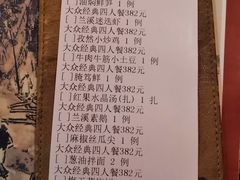 [ ]油焖鲜笋 1 例
大众经典四人餐382元
[ ]兰溪迷迭虾 1 例
大众经典四人餐382元
[ ]孜然小炒鸡 1 例
大众经典四人餐382元
[ ]牛肉牛筋小土豆 1 例
大众经典四人餐382元
[ ]腌笃鲜 1 例
大众经典四人餐382元
[ ]红果水晶汤(扎) 1 扎
大众经典四人餐382元
[ ]兰溪素鹅 1 例
大众经典四人餐382元
[ ]麻椒丝瓜尖 1 例
大众经典四人餐382元
[ ]葱油拌面 2 例
大众经典四人餐382元